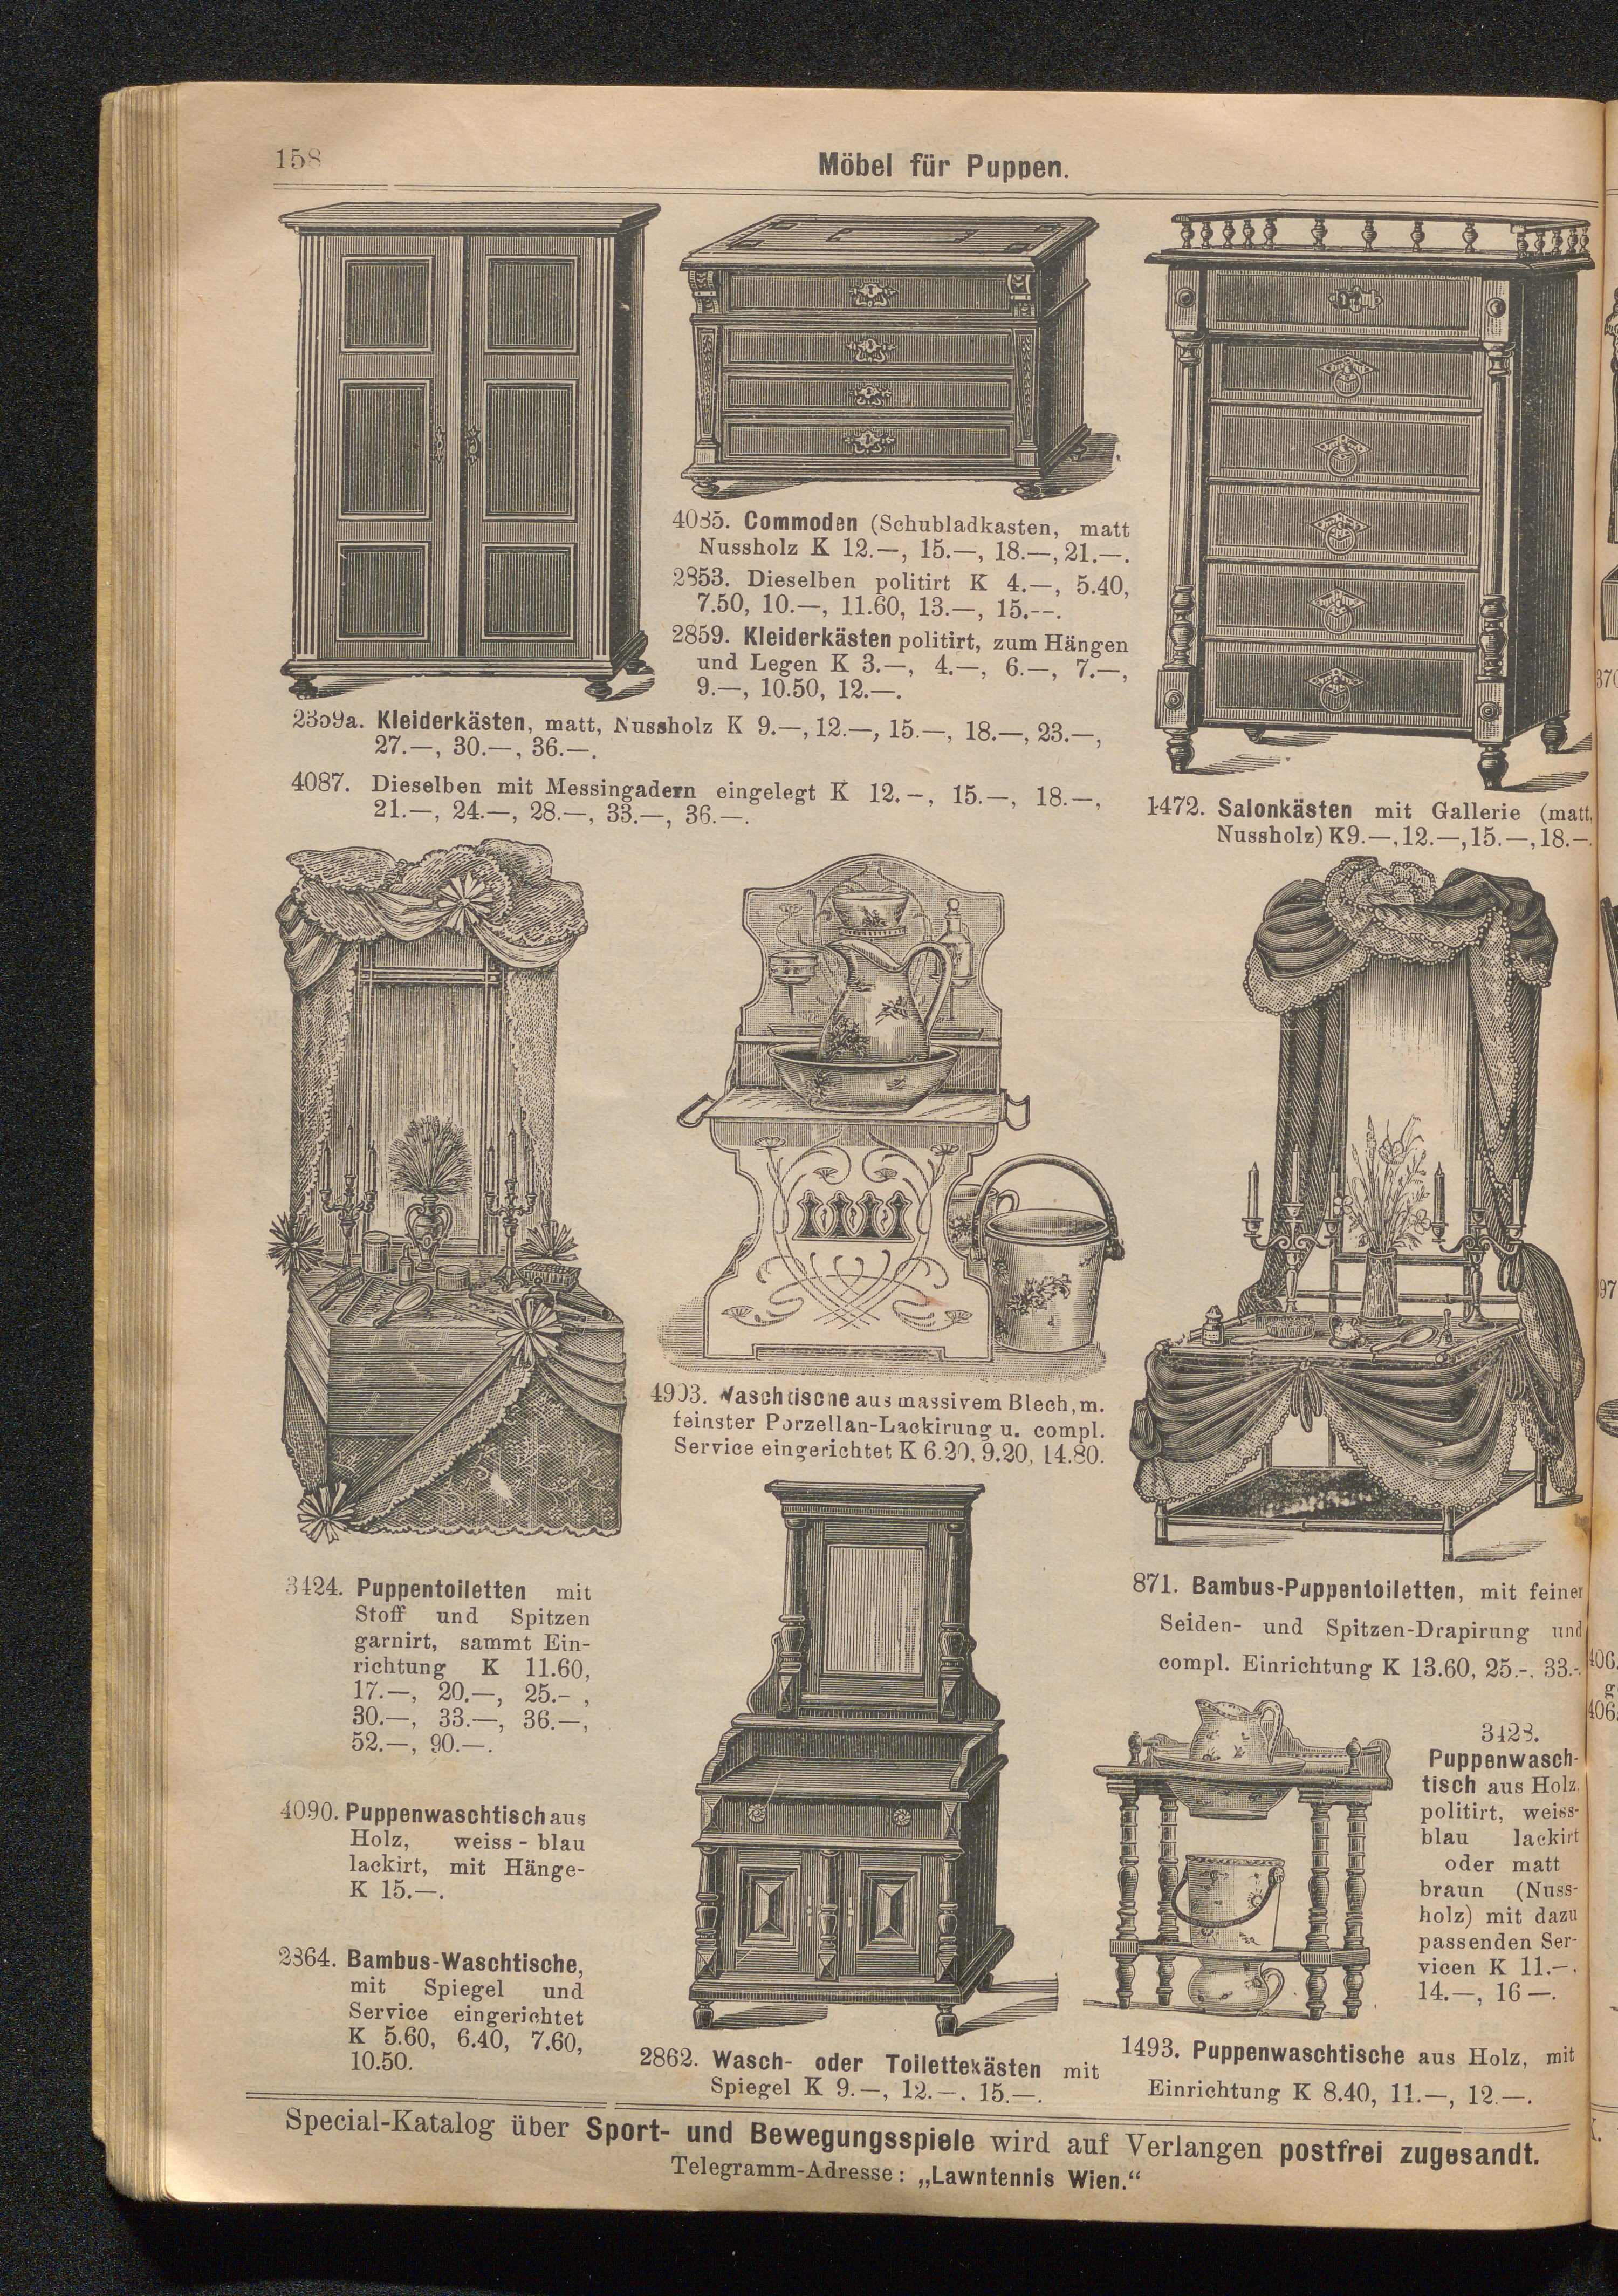 158
Möbel für Puppen.
4085. Commoden (Schubladkasten, matt
Nussholz K 12.—, 15.—, 18.—, 21.—.
2853. Dieselben politirt K 4.—, 5.40,
7.50, 10.—, 11.60, 13.—, 15.--.
2859. Kleiderkästen politirt, zum Hängen
und Legen K 3.—, 4.—, 6.—, 7.—,
9.—, 10.50, 12.—.
2359a. Kleiderkästen, matt, Nussholz K 9.—, 12.—, 15.—, 18.—, 23.—,
27.—, 30.—, 36.—.
4087. Dieselben mit Messingadern eingelegt K 12.—, 15.—, 18.—,
21.—, 24.—, 28.—, 33.—, 36.—.
1472. Salonkästen mit Gallerie (matt,
Nussholz) K 9.—, 12.—, 15.—, 18.—.
4903. Waschtische aus massivem Blech, m.
feinster Porzellan-Lackirung u. compl.
Service eingerichtet K 6.20, 9.20, 14.80.
3424. Puppentoiletten mit
Stoff und Spitzen
garnirt, sammt Ein-
richtung K 11.60,
17.—, 20.—, 25.-,
30.—, 33.—, 36.—,
52.—, 90.—.
4090. Puppenwaschtisch aus
Holz, weiss-blau
lackirt, mit Hänge-
K 15.—.
2864. Bambus-Waschtische,
mit Spiegel und
Service eingerichtet
K 5.60, 6.40, 7.60,
10.50.
2862. Wasch- oder Toilettekästen mit
Spiegel K 9.—, 12.—. 15.—.
871. Bambus-Puppentoiletten, mit feiner
Seiden- und Spitzen-Drapirung und
compl. Einrichtung K 13.60, 25.-. 33.-.
3428.
Puppenwasch-
tisch aus Holz,
politirt, weiss-
blau lackirt
oder matt
braun (Nuss-
holz) mit dazu
passenden Ser-
vicen K 11.—,
14.—, 16—.
1493. Puppenwaschtische aus Holz, mit
Einrichtung K 8.40, 11.—, 12.—.
Special-Katalog über Sport- und Bewegungsspiele wird auf Verlangen postfrei zugesandt.
Telegramm-Adresse: „Lawntennis Wien.“